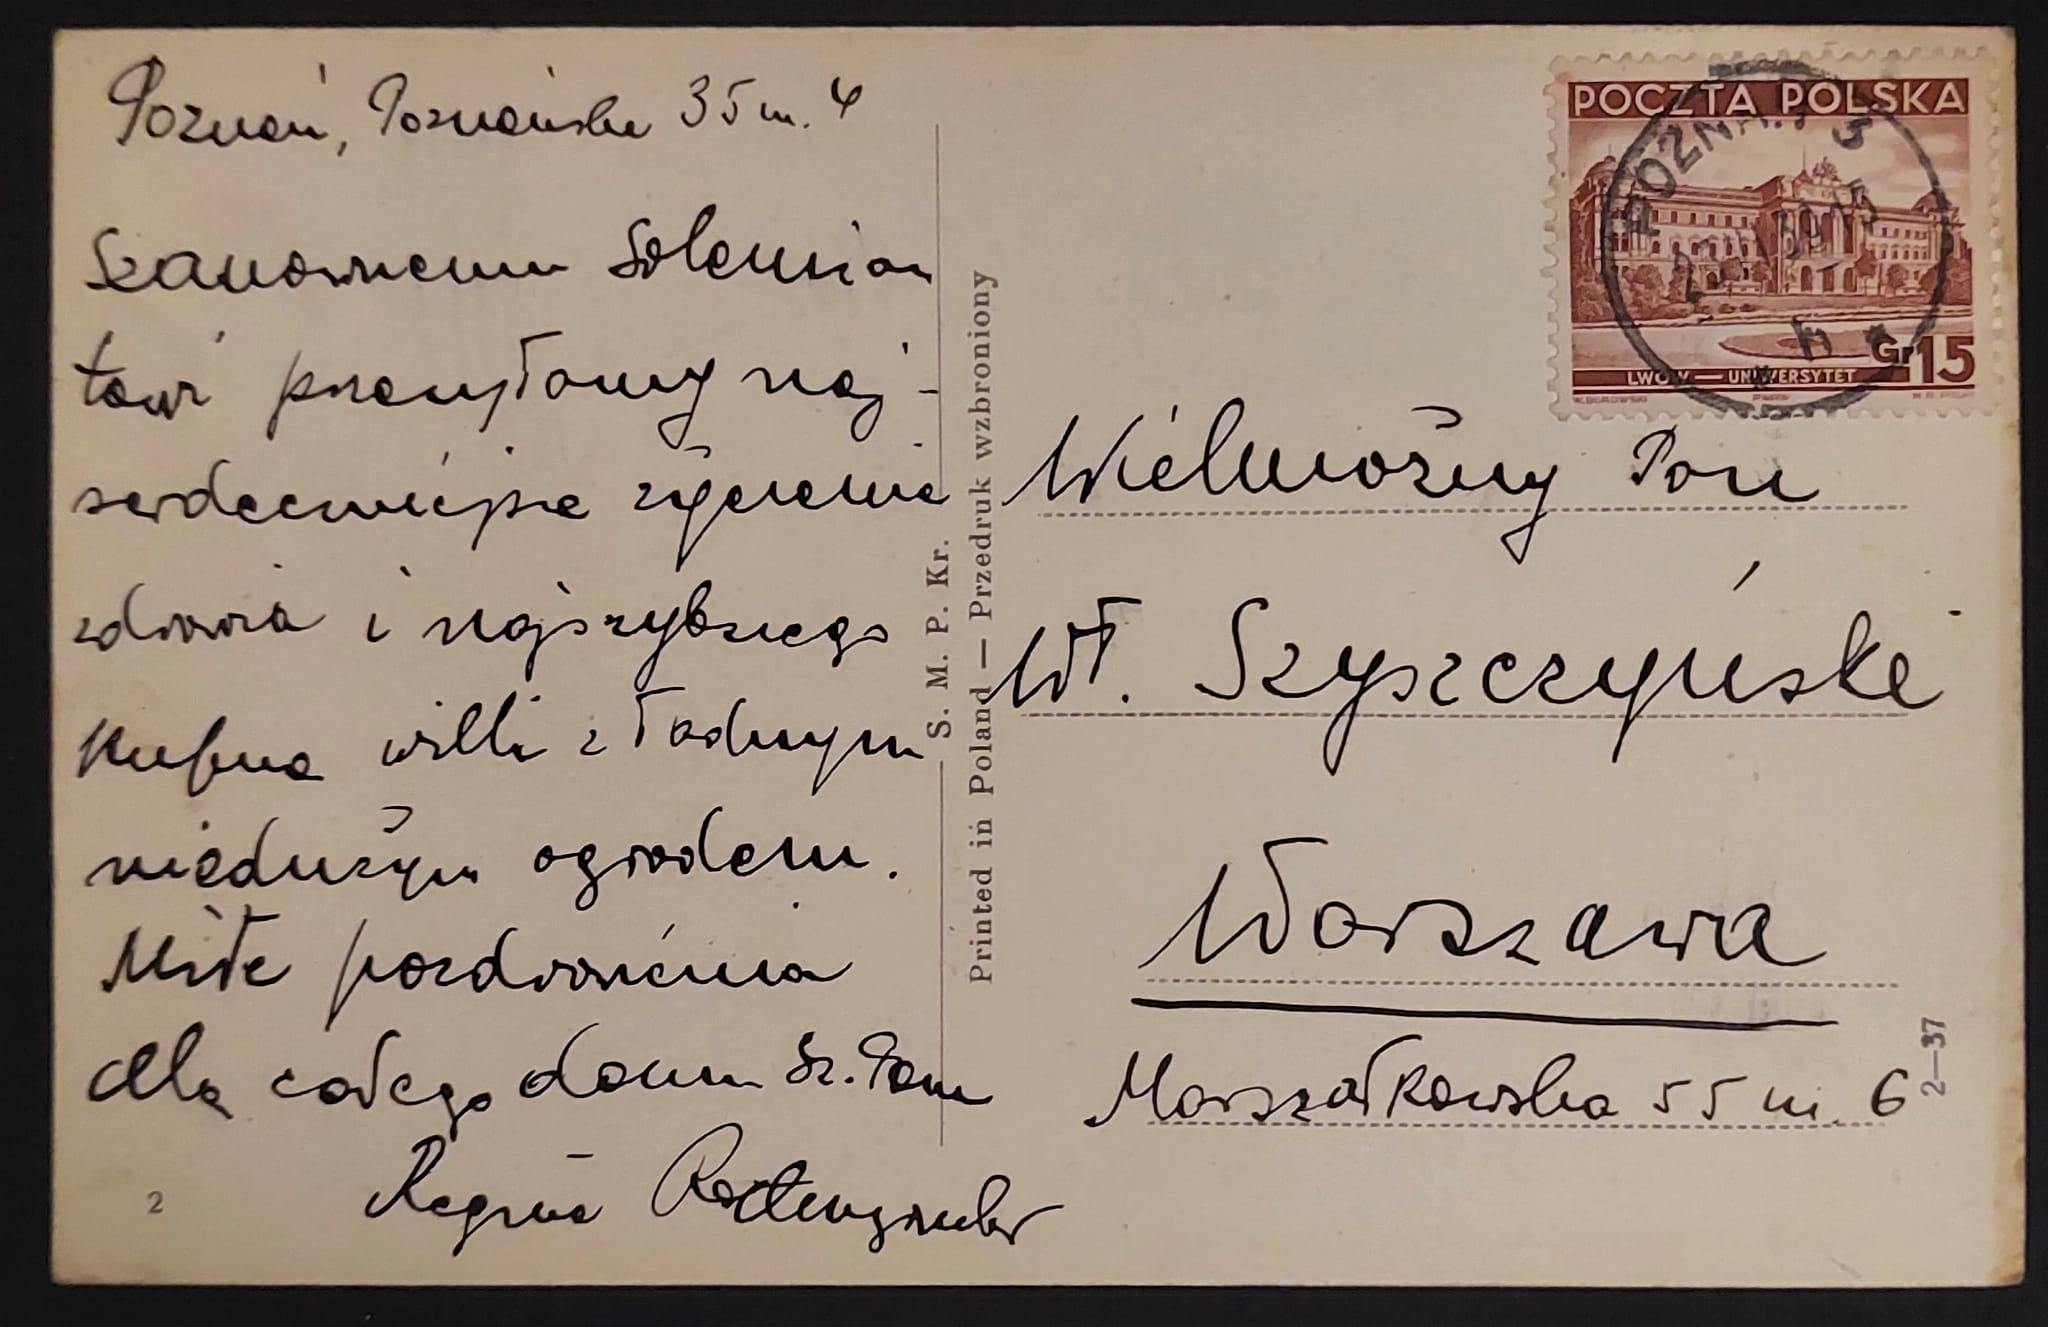 Poznań, Poznańska 35 m. 4
Szanownemu Solenizan
towi przesyłamy naj-
serdeczniejsze życzenie
zdrowia i najszybszego
kupna willi z ładnym
niedużym ogrodem.
Miłe pozdrowienia
dla całego domu Sz. Pana
2
POCZTA POLSKA
POZNAŃ 3
LWÓW — UNIWERSYTET
Gr 15
S. M. P. Kr.
Printed in Poland — Przedruk wzbroniony
Wielmożny Pan
Wł. Szyszczyński
Warszawa
Marszałkowska 55 m. 6
2—37